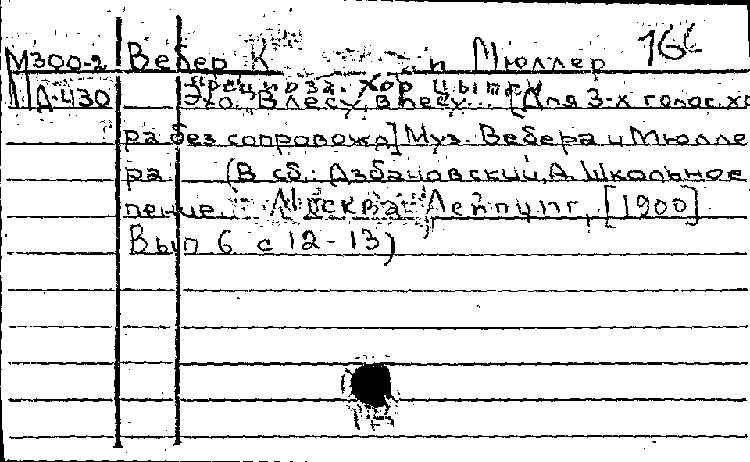 164
М300-2 Вебер К и Мюллер
Прециоза. Хор цыган
Д-430 Эхо. В лесу, в лесу... [Для 3-х голос. хо
ра без сопровожд] Муз. Вебера и Мюлле
ра (В сб.: Азбачевский, А. Школьное
пение. Москва-Лейпциг, [1900]
Вып 6 с 12-13)